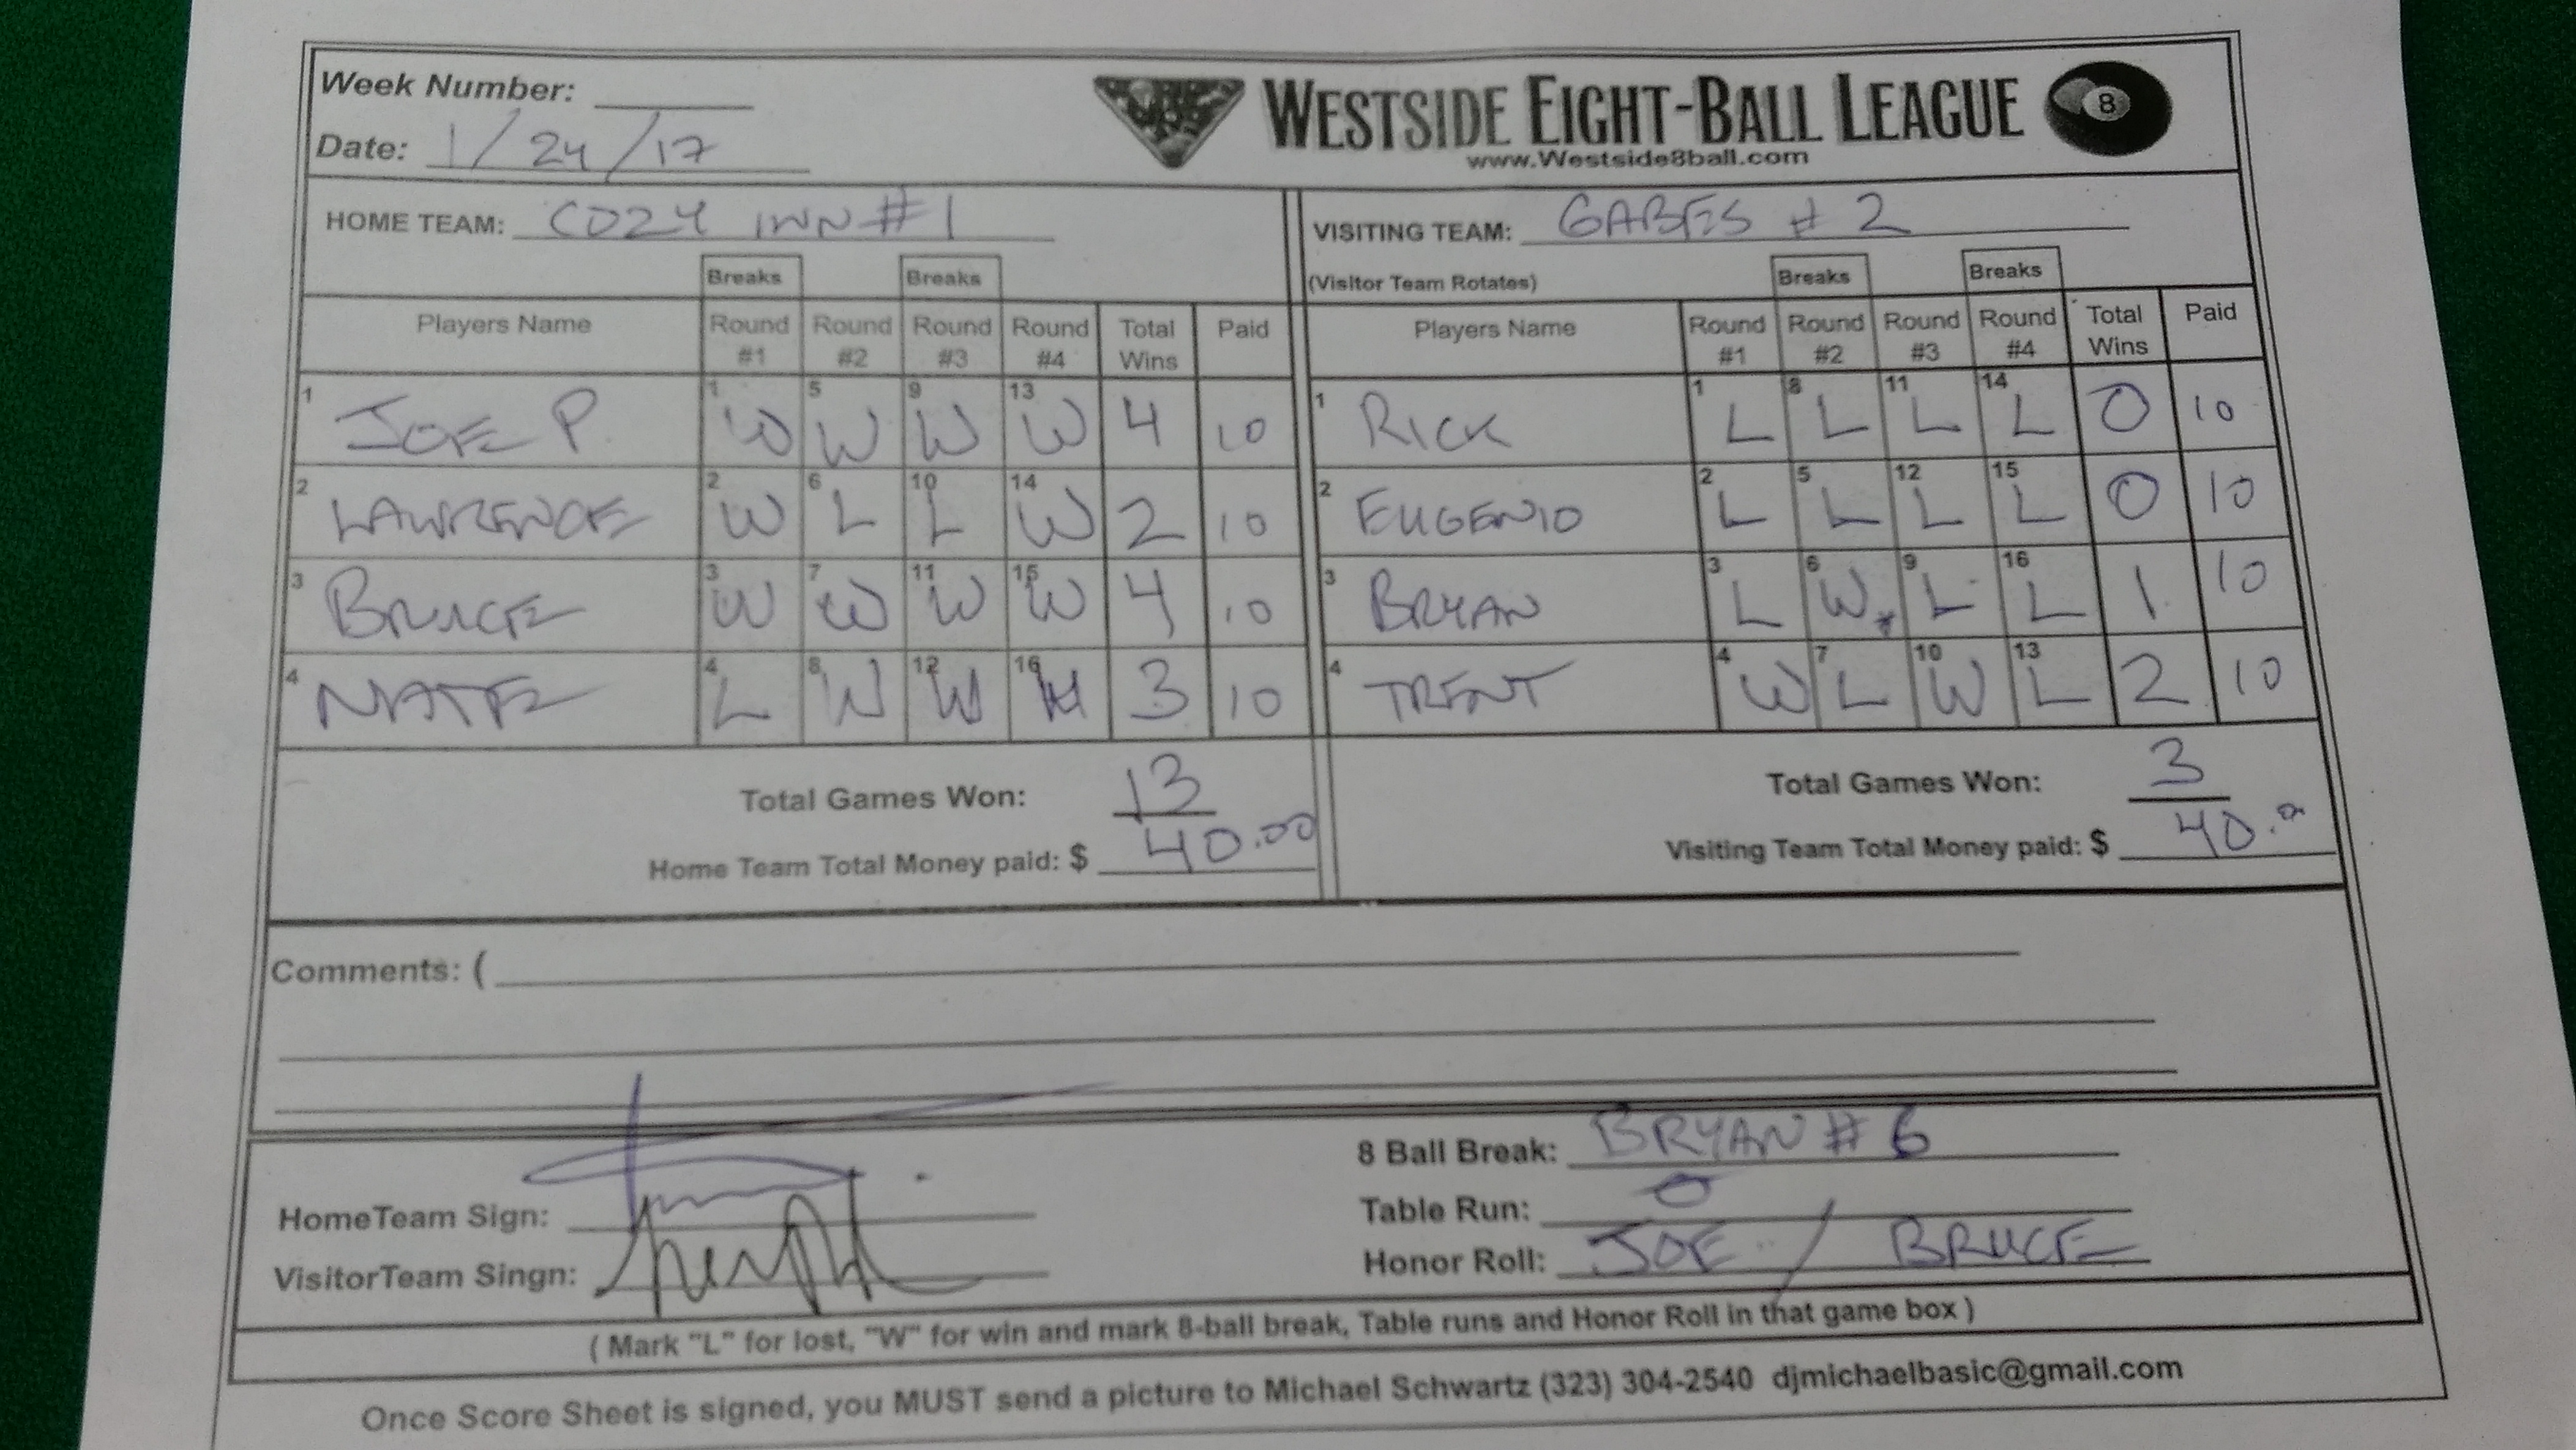 Week Number:
WESTSIDE EIGHT-BALL LEAGUE 8
Date: 1/24/17
www.Westside8ball.com
HOME TEAM: COZY INN #1
VISITING TEAM: GABES # 2
Breaks Breaks
(Visitor Team Rotates) Breaks Breaks
Players Name Round #1 Round #2 Round #3 Round #4 Total Wins Paid
Players Name Round #1 Round #2 Round #3 Round #4 Total Wins Paid
1 JOE P. 1 W 5 W 9 W 13 W 4 10
1 RICK 1 L 8 L 11 L 14 L 0 10
2 LAWRENCE 2 W 6 L 10 L 14 W 2 10
2 EUGENIO 2 L 5 L 12 L 15 L 0 10
3 BRUCE 3 W 7 W 11 W 15 W 4 10
3 BRYAN 3 L 6 W* 9 L 16 L 1 10
4 NATE 4 L 8 W 12 W 16 W 3 10
4 TRENT 4 W 7 L 10 W 13 L 2 10
Total Games Won: 13
Total Games Won: 3
Home Team Total Money paid: $ 40.00
Visiting Team Total Money paid: $ 40.00
Comments: (
8 Ball Break: BRYAN # 6
HomeTeam Sign:
Table Run: 0
VisitorTeam Singn:
Honor Roll: JOE / BRUCE
( Mark "L" for lost, "W" for win and mark 8-ball break, Table runs and Honor Roll in that game box )
Once Score Sheet is signed, you MUST send a picture to Michael Schwartz (323) 304-2540 djmichaelbasic@gmail.com